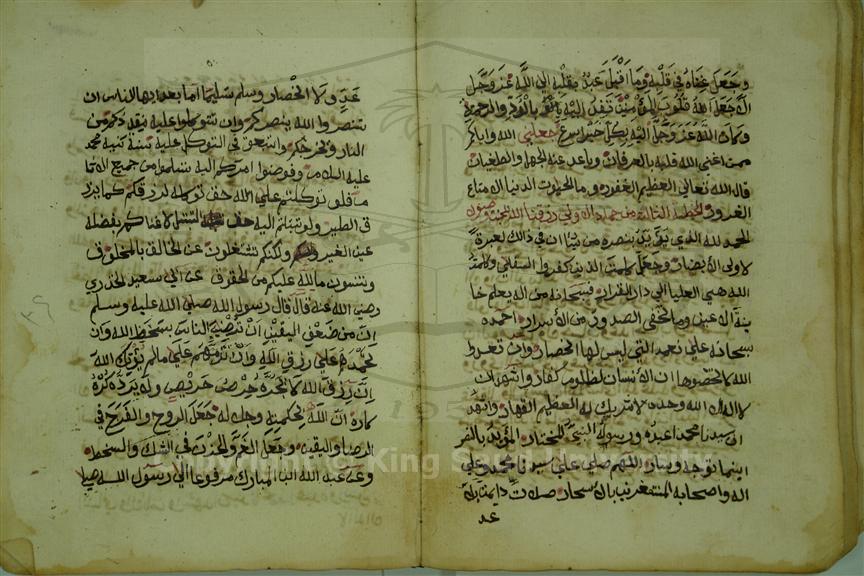 وجعل غناه في قلبه وما اقبل عبد بقلبه الى الله عز وجل
الا جعل الله قلوب المؤمنين تفد اليه بالود والرحمة
وكان الله عز وجل اليه بكل خير اسرع جعلني الله واياكم
ممن اغنى الله قلبه بالعرفان وباعد عنه الجهل والطغيان
قال الله تعالى العظيم الغفور وما الحيوت الدنيا الا متاع
الغرور الخطبة الثالثة من جماد الاولى
الحمد لله الذي يؤيد بنصره من يشا ان في ذالك لعبرة
لاولى الابصار وجعل كلمت الذين كفروا السفلى وكلمة
الله هي العليا الى دار القرار فسبحانه من اله يعلم خا
ينة الاعين وما تخفى الصدور من الاسرار احمده
سبحانه على نعمه التي ليس لها انحصار وان تعدوا
الله لا تحصوها ان الانسان لظلوم كفار واشهد ان
لا اله الا الله وحده لا شريك له العظيم القهار واشهد
ان سيدنا محمدا عبده ورسوله النبي المختار المؤيد بالنصر
اينما توجه وسار اللهم صلي على سيدنا محمد وعلى
اله واصحابه المستغفرين بالاسحار صلاة دايمة بلا
عد
عدٍ ولا انحصار وسلم تسليما اما بعد ايها الناس ان
تنصروا الله ينصركم وان تتوكلوا عليه ينقذكم من
النار ويخرجكم واتبعوا في التوكل عليه سنة نبيه محمد
عليه السلام وفوضوا امركم اليه تسلموا من جميع الاثا
م فلو توكلتم على الله حق توكله لرزقكم كما يرز
ق الطير ولو تبتلتم اليه حق التبتل لاغناكم بفضله
عن الغير ولكنكم تشتغلون عن الخالق بالمخلوق
وتنسون ما لله عليكم من الحقوق عن ابي سعيد الخدري
رضي الله عنه قال قال رسول الله صلى الله عليه وسلم
ان من ضعف اليقين ان ترضي الناس بسخط الله وان
تحمدهم على رزق الله وان تذمهم على مالم يؤتك الله
ان رزق الله لا يجره حرص حريص ولا يرده كره
كاره ان الله بحكمته وجلاله جعل الروح والفرح في
الرضا واليقين وجعل الغم والحزن في الشك والسخط
وعن عبد الله ابن المبارك مرفوعا الى رسول الله صلا
Copyright © King Saud University
195